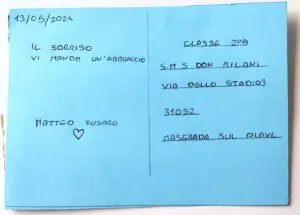 13/05/2024
IL SORRISO
VI MANDA UN'ABBRACCIO
MATTEO FUSARO
CLASSE 2ªB
S.M.S DON MILANI
VIA DALLO STADIO 3
31052
MASERADA SUL PIAVE